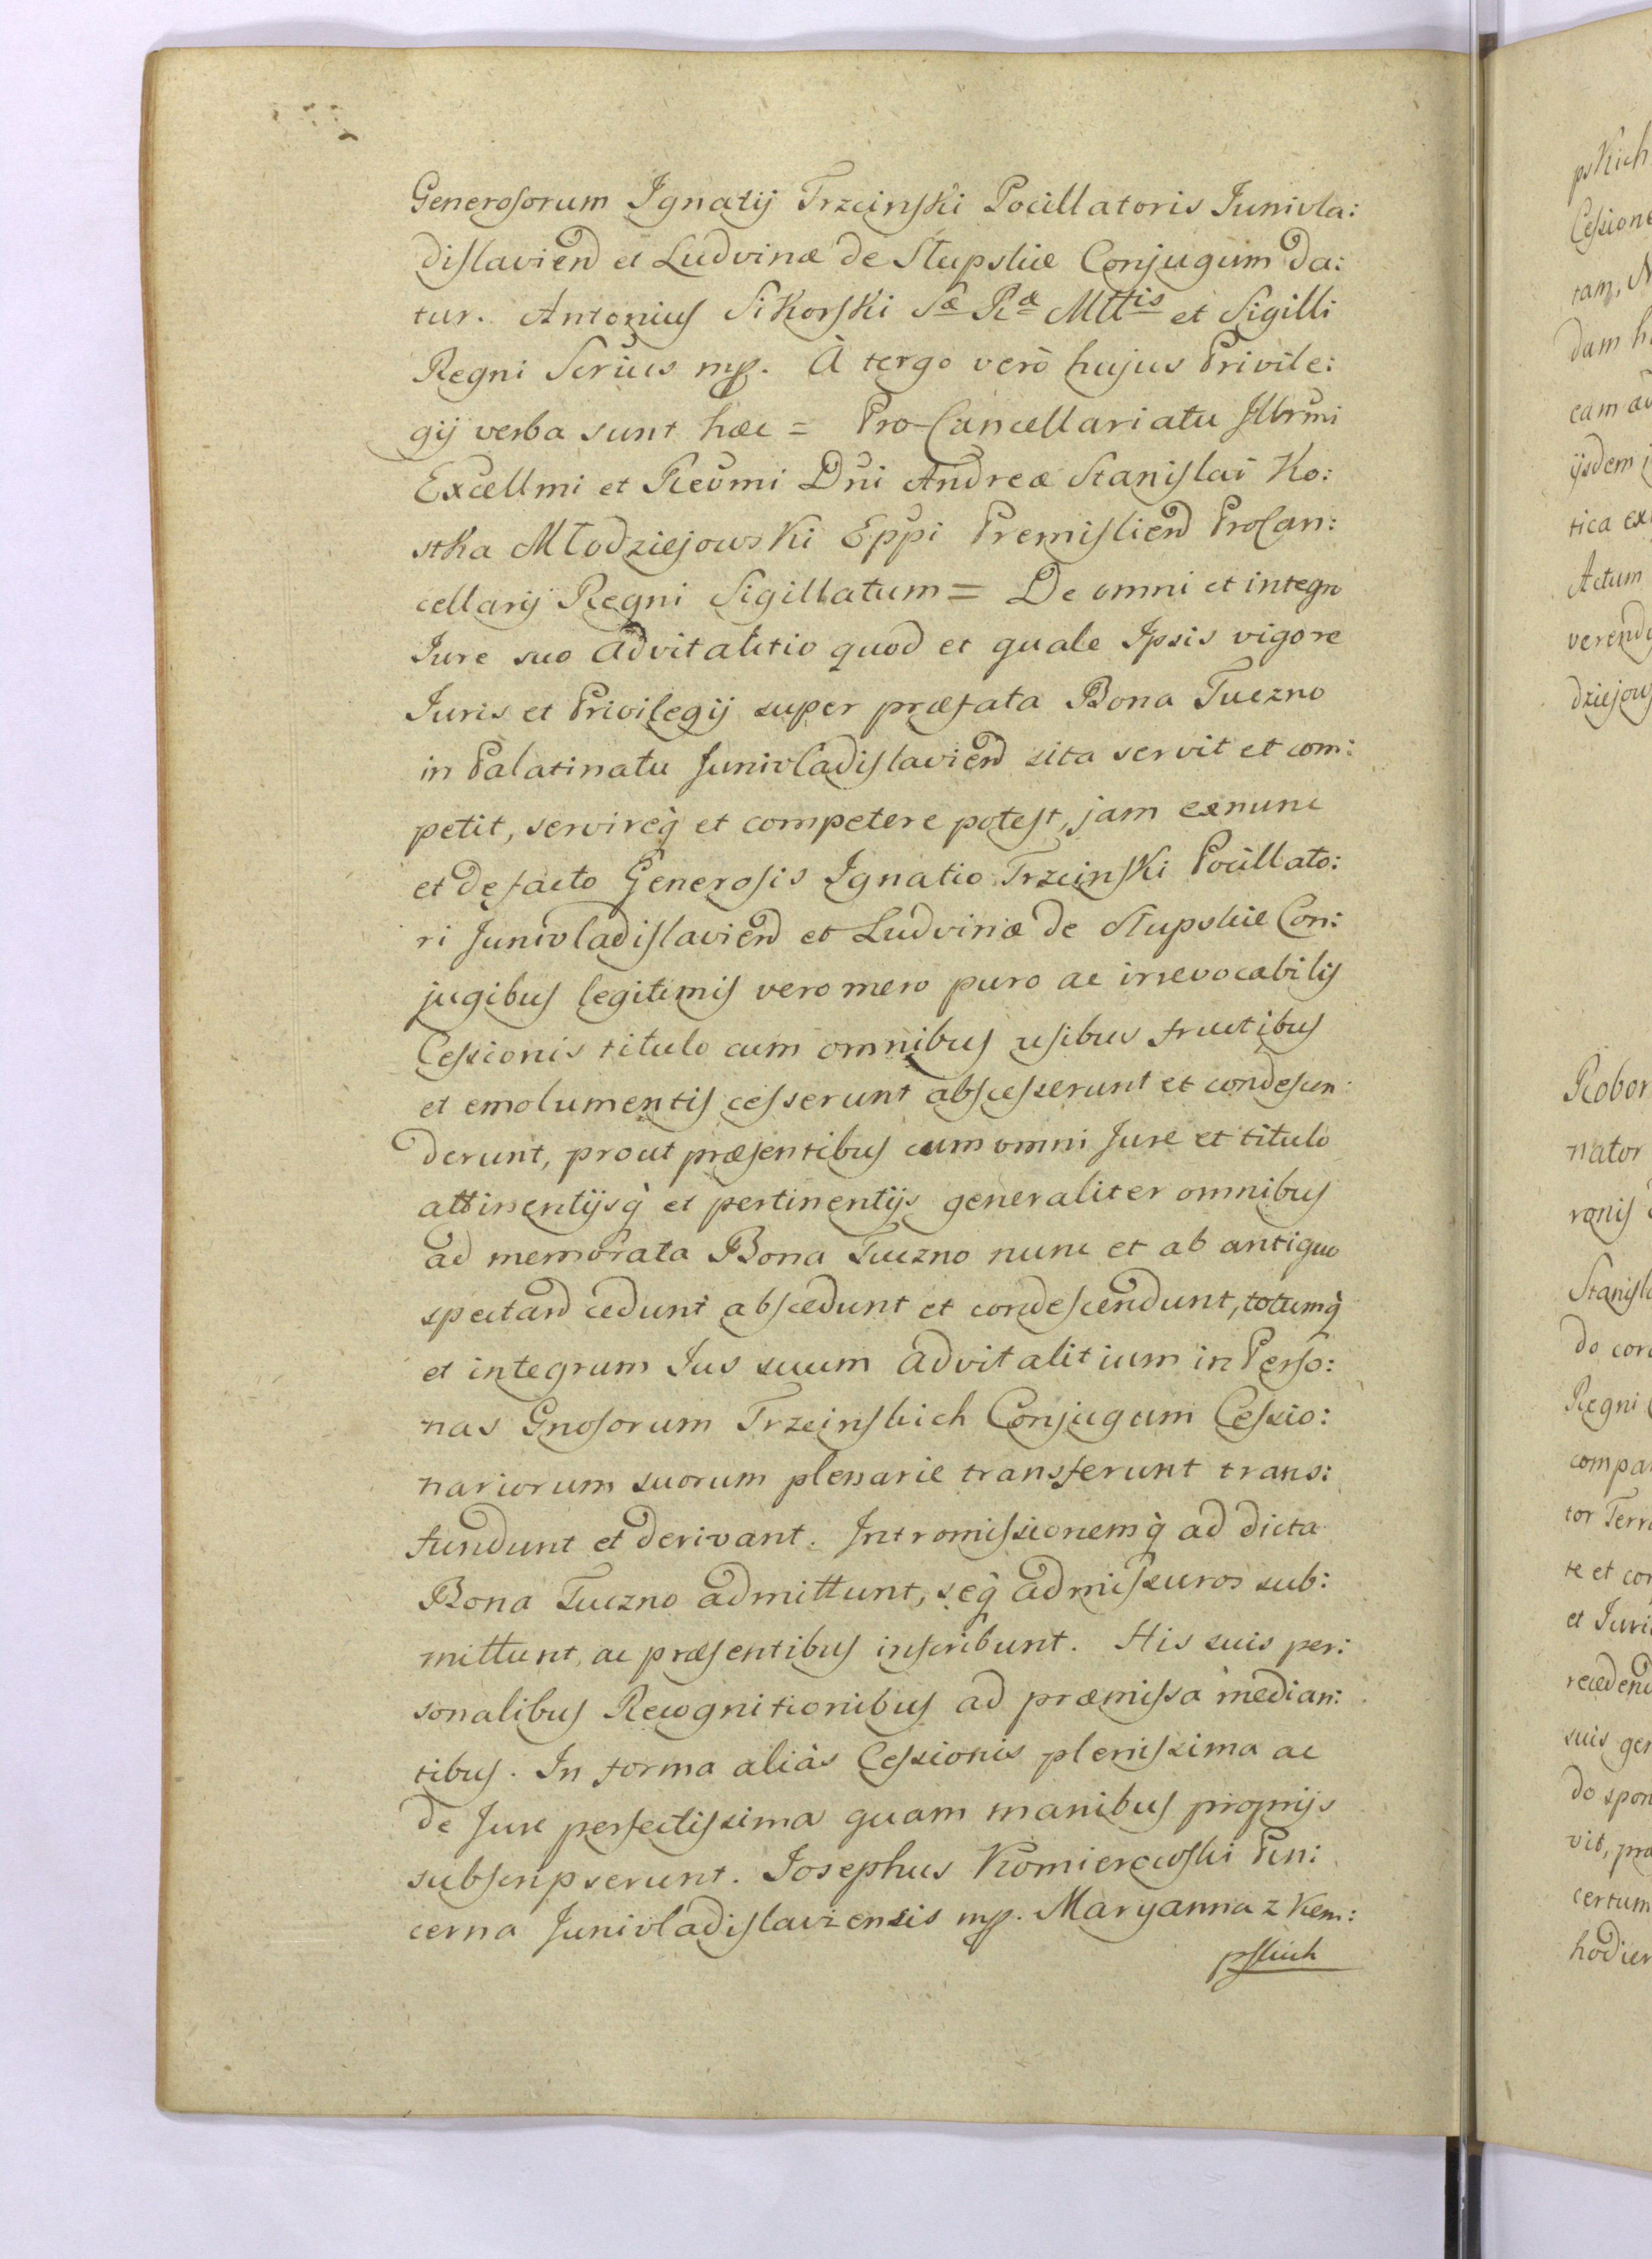 Generosorum Ignatij Trzcinski Pocillatoris Junivla:
dislaviend et Ludvinæ de Słupskie Conjugum da:
tur. Antonius Sikorski Sæ Ræ Mttis et Sigilli
Regni Scrius mp. À tergo verò hujus Privile:
gij verba sunt hæc = Pro-Cancellariatu Illrmi
Excellmi et Revmi Dni Andreæ Stanislai Ko:
stka Młodziejowski Eppi Premisliend ProCan:
cellarij Regni Sigillatum = De omni et integro
Jure suo advitalitio quod et quale Ipsis vigore
Juris et Privilegij super præfata Bona Tuczno
in Palatinatu Junivladislaviend sita servit et com:
petit, servireq et competere potest, jam exnunc
et defacto Generosis Ignatio Trzcinski Pocillato:
ri Junivladislaviend et Ludvinæ de Słupskie Con:
jugibus legitimis vero mero puro ac irrevocabilis
Cessionis titulo cum omnibus usibus fructibus
et emolumentis cesserunt abscesserunt et condescen:
derunt, prout præsentibus cum omni Jure et titulo
attinentijsq et pertinentijs generaliter omnibus
ad memorata Bona Tuczno nunc et ab antiquo
spectand cedunt abscedunt et condescendunt, totumq
et integrum Jus suum advitalitium in Perso:
nas Gnosorum Trzcinskich Conjugum Cessio:
nariorum suorum plenarie transferunt trans:
fundunt et derivant. Intromissionemq ad dicta
Bona Tuczno admittunt, seq admissuros sub:
mittunt, ac præsentibus inscribunt. His suis per:
sonalibus Recognitionibus ad præmissa median:
tibus. In forma aliàs Cessionis plenissima ac
de Jure perfectissima quam manibus proprijs
subscripserunt. Josephus Komierowski Pin:
cerna Junivladislaviensis mp. Maryanna z Kem:
pskich
pskich
Cessione
tam,
dam
eam
ijsdem
tica
Actum
Robor
nator
ronis
do
Regni
compa
tor Terr
te et
et Juri
suis
vit,
certum
hodier